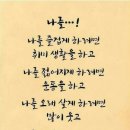 나를...!
나를 즐겁게 하려면
취미 생활을 하고
나를 젊어지게 하려면
운동을 하고
나를 오래 살게 하려면
많이 웃고